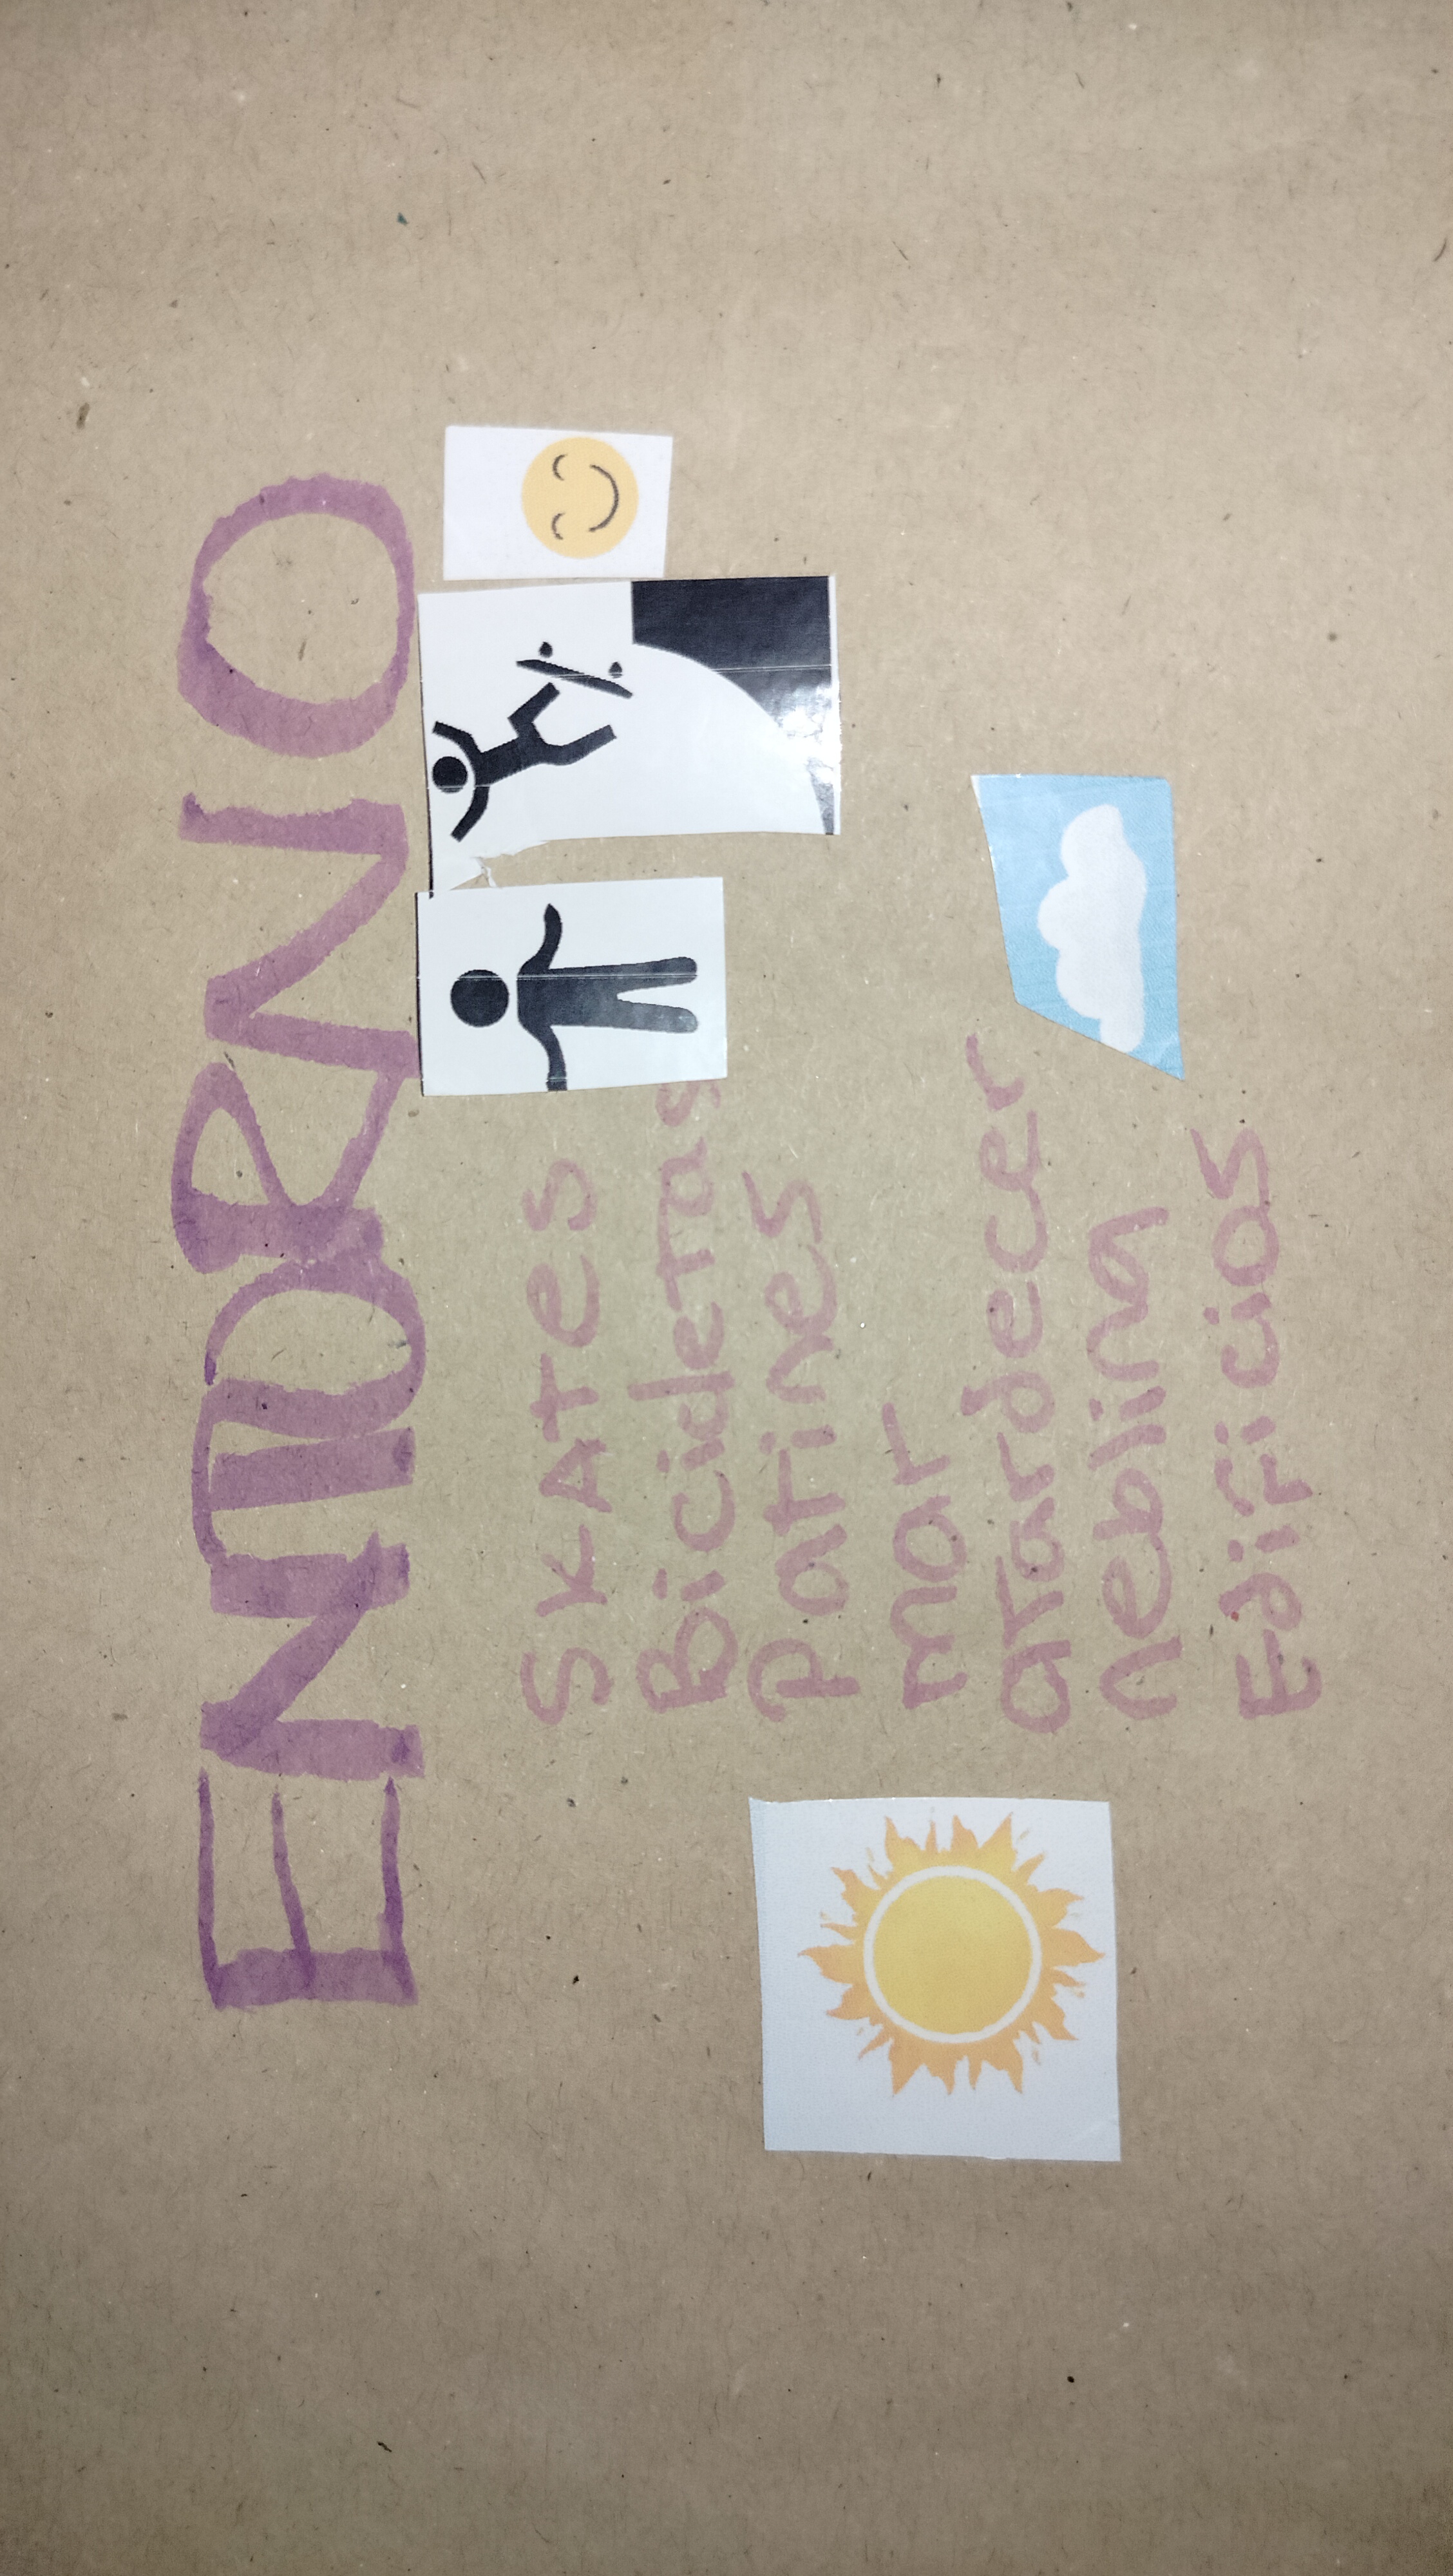 ENTORNO
SKATES
Bicicletas
Patines
mar
atardecer
neblina
Edificios